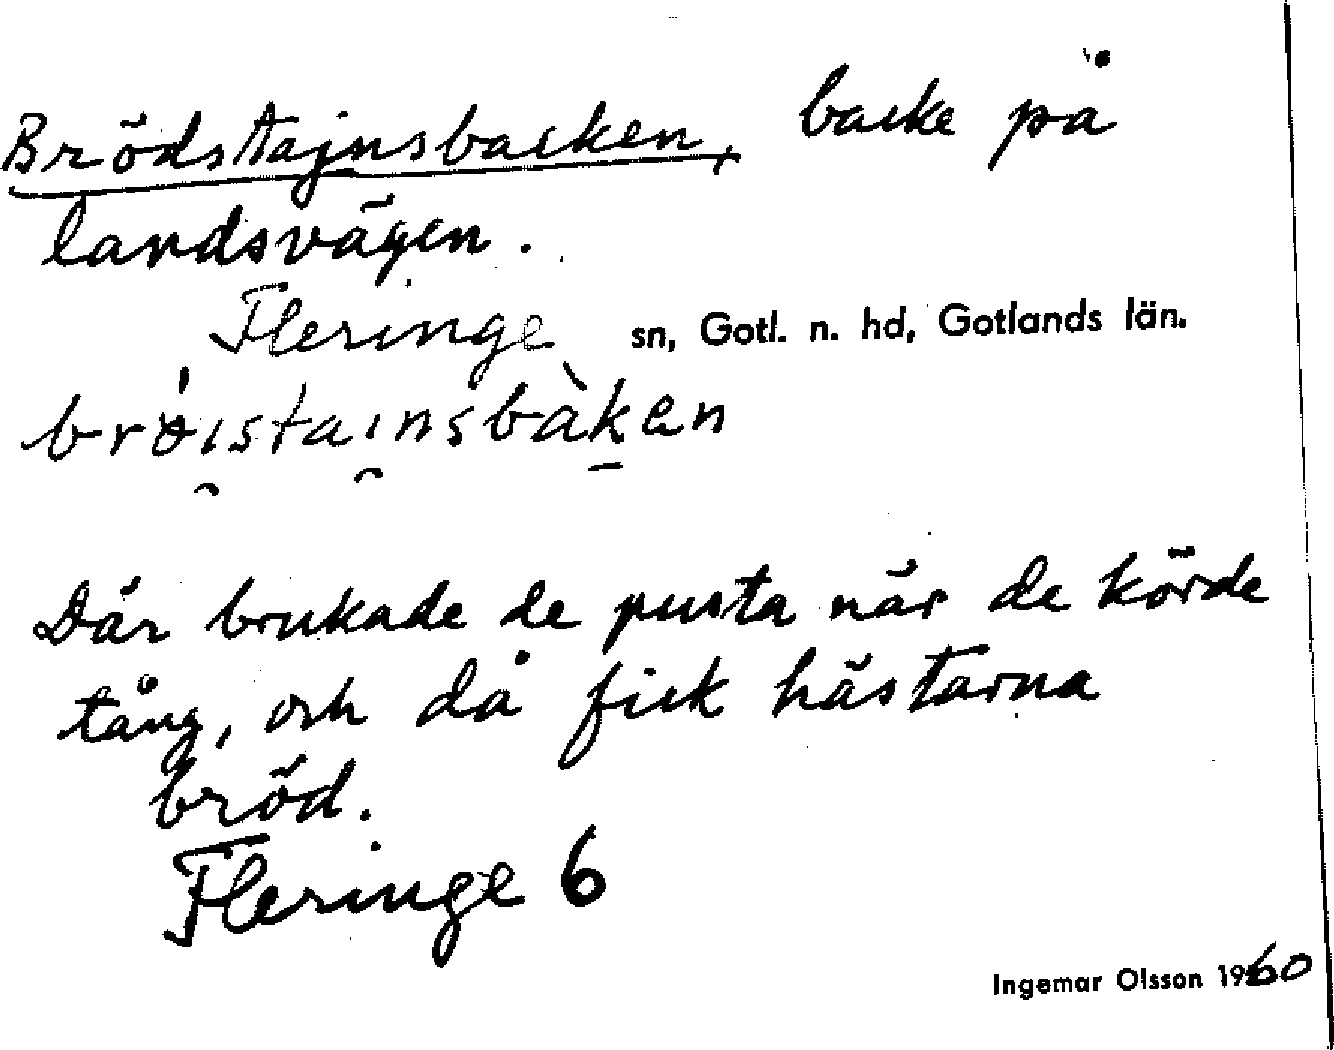 Brödstajnsbacken, backe på
landsvägen.
Fleringe sn, Gotl. n. hd, Gotlands län.
brøi̯stai̯nsbàk̲en
Där brukade de pusta när de körde
tång, och då fick hästarna
bröd.
Fleringe 6
Ingemar Olsson 1960